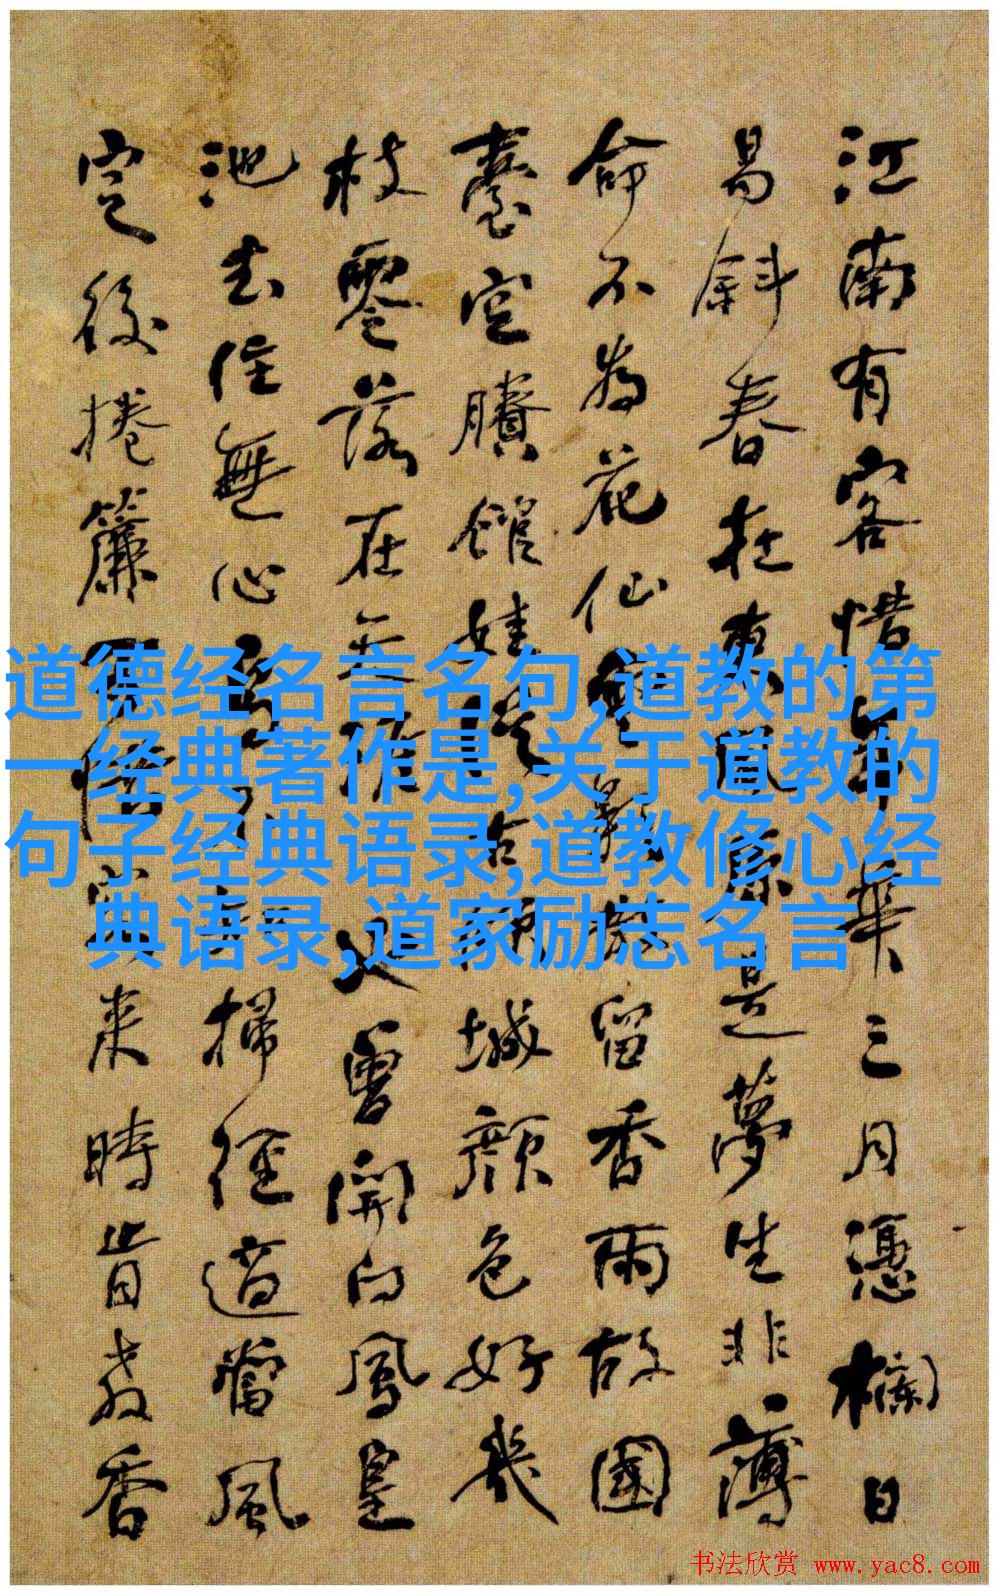 江南有客惜年華三月憑欄日
易斜春在東風原是夢生非薄
命不為花仙留香雨故國
臺空賸館娃城顏色好幾
枝零落在天涯
又曾開向鳳皇
池去住無心掃徑適當風
定後捲簾來時肯教香
道德经名言名句,道教的第
一经典著作是,关于道教的
句子经典语录,道教修心经
典语录,道家励志名言
书法欣赏 www.yac8.com